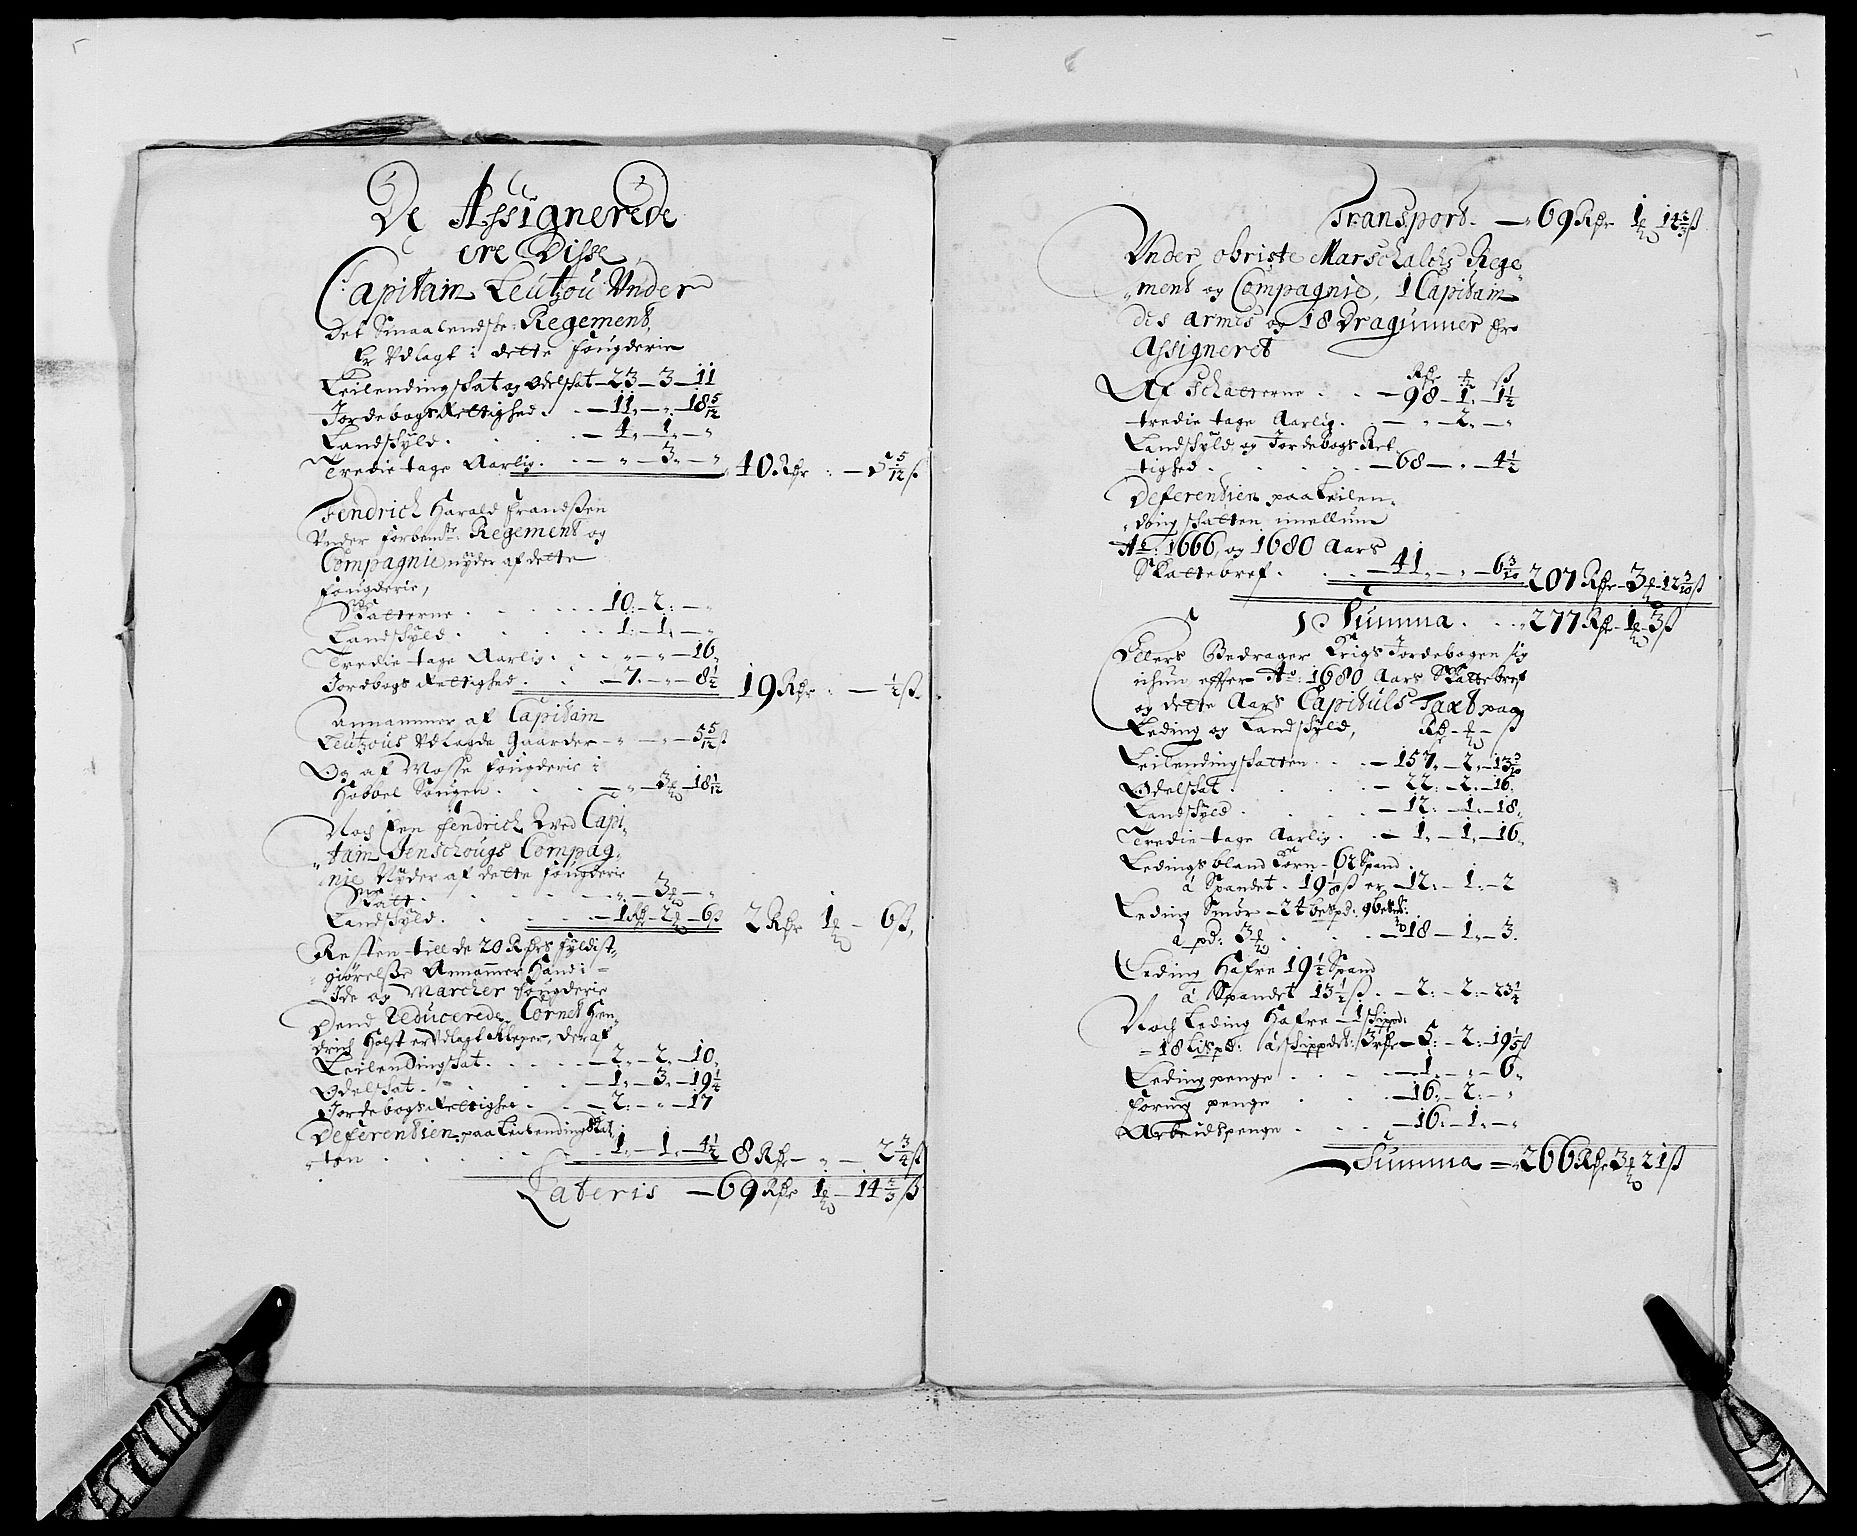 De Assignerede
ere Disse
Capitain Leutzou Vnder
Det Smaalendske: Regement,
Er Vdlagt i dette fougderie
Leilendingskat og Odelskat - 23 - 3 - 11
Jordebogs Rettighed . . - 11 „ - „ - 18 5/12
Landskyld . . . . - 4 „ - 1 „ - „
Tredie tage Aarlig . . - „ - 3 „ - „ 40 Rdr : - 5 5/12 ß
Fendrich Harald frandsen
Vnder forbemte: Regement og
Compagnie nyder af dette
fougderie,
Skatterne . . . . . 10 : - 2 : - „
Landskyld . . . . . 1 : - 1 : - „
Tredie tage Aarlig . . . „ - „ - 16 „
Jordbogs Rettighed . . - 7 „ - „ - 8 1/2 19 Rdr : - 1/2 ß
Annammer af Capitain
Leutzous Vdlagde Gaarder - „ - „ - 5 5/12 ß
Og af Mosse fougderie i
Haaboel Sougen . . . . - „ - 3 - 18 1/12
Noch En fendrich Wed Capi„
„tain Jenschougs Compag„
nie Nyder af dette fougderie
Skatt . . . . . . - „ - 3 - „
Landskyld . . . . . - 1 Rdr - 2 - 6 ß 2 Rdr 1 - 6 ß,
Resten till de 20 Rdrs fyldist„
giørelsse Annammer Hand i =
Ide og Marcher fougderie
Dend Reducerede Cornet Hen„
drich Holst er Vdlagt Aleene, Der af
Leilendingskat . . . . - 2 „ - 2 „ - 10 „
Odelskat . . . . - 1 „ - 3 „ - 19 1/4
Jordebogs Rettighed . . - 2 : - „ - 17
Deferentien paa Leilendingskat„
„ten . . . . . . 1 „ - 1 „ - 4 1/2 8 Rdr - „ - 2 3/4 ß
Lateris - 69 Rdr 1 - 14 2/3 ß
Transport - „ 69 Rdr 1 14 2/3 ß
Vnder obriste Marschalchs Rege„
„ment og Compagnie, 1 Capitain
des armes og 18 Dragunner Er
Assigneret
Rdr ß
Af Schatterne . . . - 98 - 1 „ - 1 1/2
tredie tage Aarlig . . - „ - 2 „ - „
Landskyld og Jordebogs Ret„
tighed . . . . . - 68 - „ - 4 1/2
Deferentien paa Leilen„
„ding skatten imellum
Ao: 1666, og 1680 Aars
Skattebref . . . . - 41 „ - „ - 6 3/10 207 Rdr - 3 - 12 3/10 ß
Summa . . . „ 277 Rdr - 1 - 3 ß
Ellers Bedrager Krigs Jordebogen sig
ichun effter Ao: 1680 Aars Skattebref
og dette Aars Capituls Taxt paa
Leding og Landskyld, Rdr - - ß
Leilendingskatten . . . - 157 „ - 2 „ - 13 3/10
Odelskat . . . . . - 22 : - 2 „ - 16 :
Landskyld . . . . - 12 : - 1 „ - 18 „
Tredie tage Aarlig . . - 1 „ - 1 „ - 16 „
Ledings bland Korn - 62 Spand
á Spandet . 19 1/8 ß er - 12 : - 1 : - 2
Leding Smør - 24
á pd: 3 . . . . - 18 - 1 „ - 3 .
Leding Hafre 19 1/2 Spand
á Spandet 13 1/2 ß . - 2 : - 2 : - 23 1/4
Noch Leding Hafre - 1 Schippd:
= 18 Lispd: á Schippdet: 3 Rdr - 5 : - 2 : - 19 1/5 ß
Leding penge . . . . - 1 „ - „ - 6 „
foring penge . . . - 16 „ - 2 : - „
Arbeidspenge . . . . - 16 : - 1 „ - „
Summa - „ 266 Rdr 3 21 ß